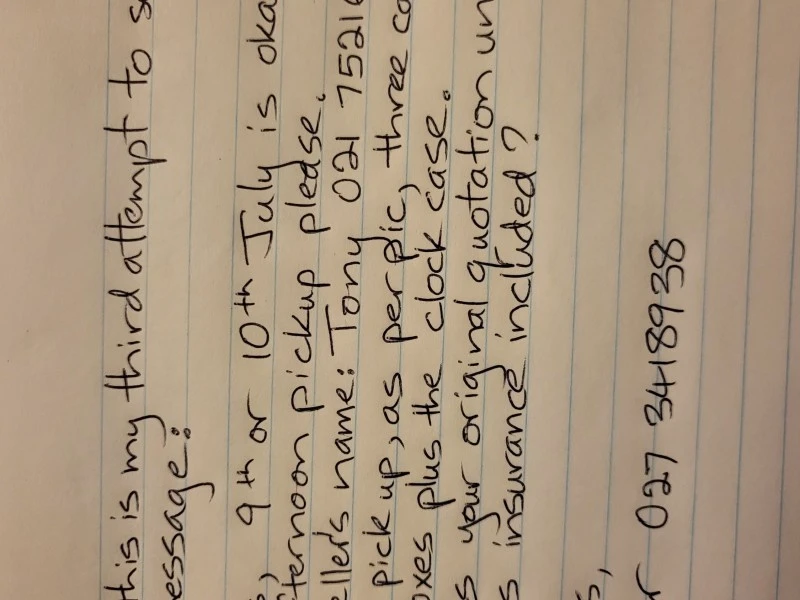 this is my third attempt to s
essage:
9th or 10th July is oka
ternoon pickup please.
eller's name: Tony 021 7521
pick up, as per pic, three co
oxes plus the clock case.
s your original quotation un
s insurance included?
s,
r 027 3418938